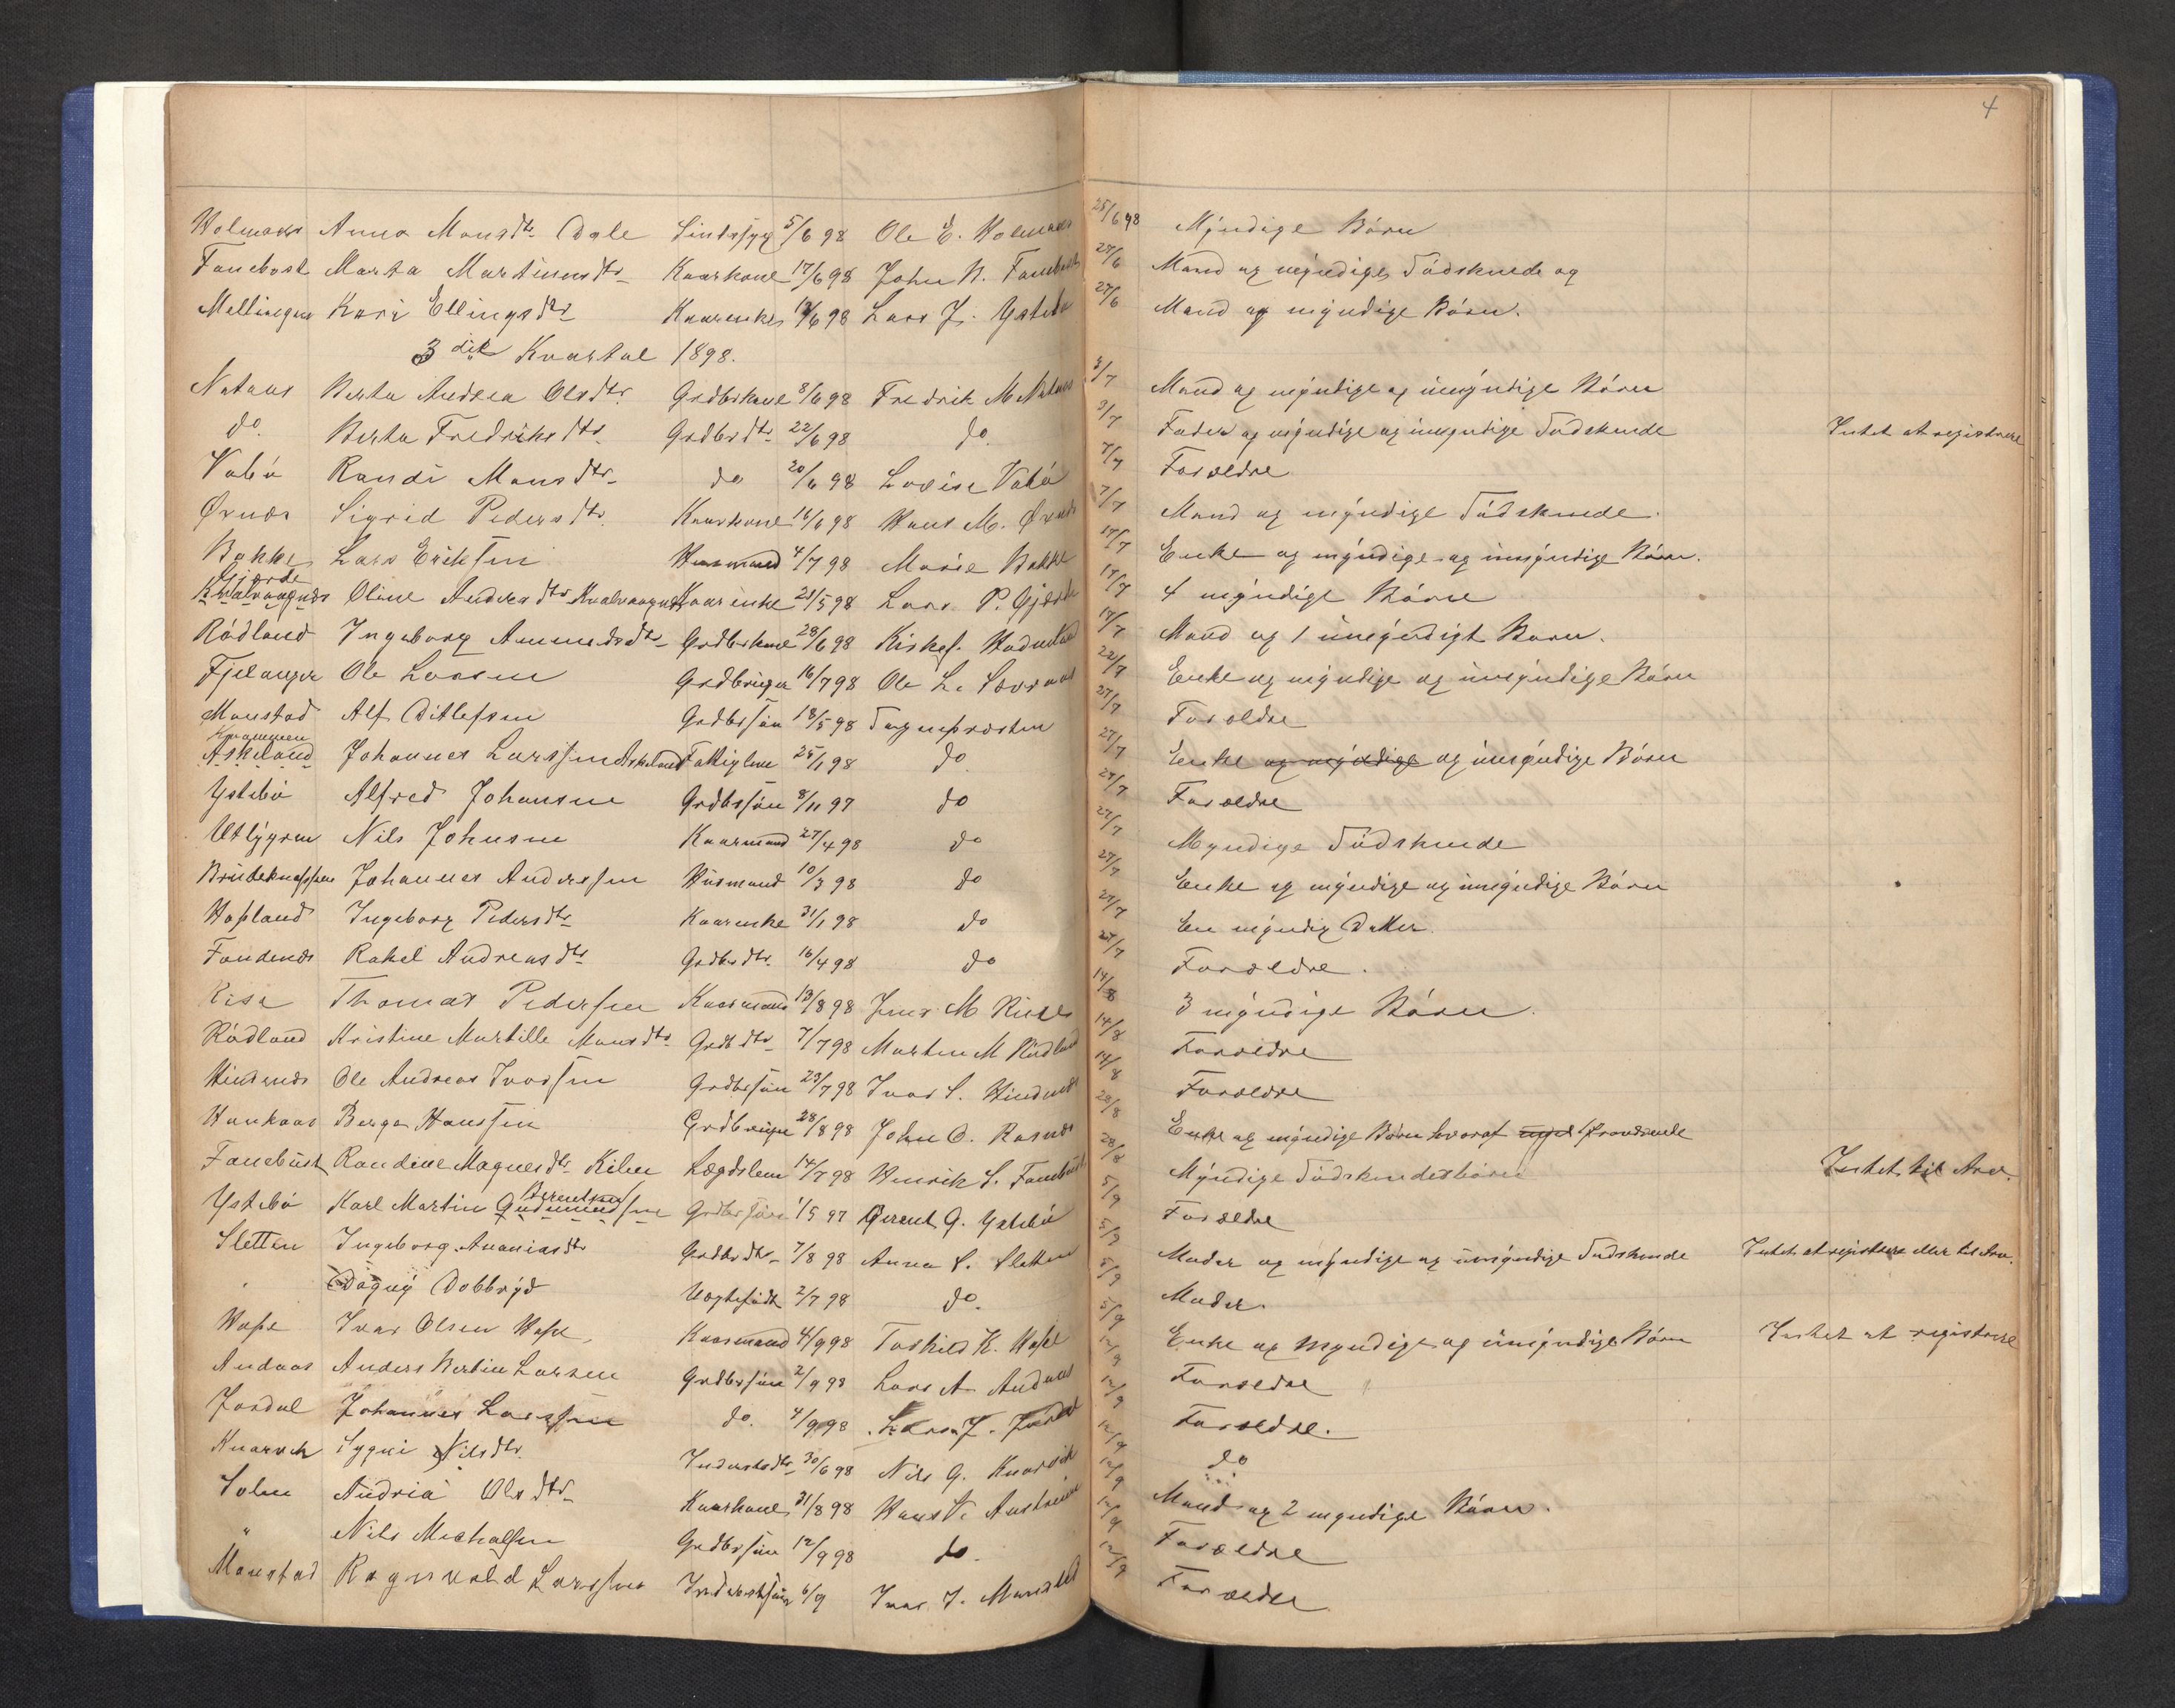 4
Holmaas Anna Monsdtr Dale Sindssyg 5/6 98 Ole E. Holmaas 25/6 98 Myndige Børn
Fanebost Marta Martinusdtr Kaarkone 17/6 98 John N. Fanebost 27/6 Mand og myndige Södskende og
Mellingen Kari Ellingsdtr Kaarenke 98 Lars J. Ystebö 27/6 Mand og myndige Börn.
3die Kvartal 1898.
Nataas Berta Andrea Olsdtr Grdbrkone 8/6 98 Fredrik M Nataas 3/7 Mand og myndige og umyndige Börn
do. Berta Fredriksdtr Grdbrdtr 22/6 98 do. 3/7 Fader og myndige og umyndige Södskende Intet at registrere
Vabö Randi Monsdtr do 20/6 98 Lovise Vabö 7/7 Forældre
Ørnæs Sigrid Pedersdtr Kaarkone 16/6 98 Hans M. Ørnæs 7/7 Mand og myndige Södskende.
Bakke Lars Eriksen Husmand 4/7 98 Marie Bakke 17/7 Enke og myndige og umyndige Börn.
Gjerde
Kvalvaagnes Oline Andersdtr Kvalvaagnes Kaarenke 21/5 98 Lars P. Gjerde 17/7 4 myndige Börn
Rödland Ingeborg Ammundsdtr Grdbrkone 28/6 98 Kirkes. Hodneland 17/7 Mand og 1 umyndigt Barn.
Fjelanger Ole Larsen Grdbruger 16/7 98 Ole L. 22/7 Enke og myndige og umyndige Börn
Monstad Alf Ditlefsen Grdbrsön 18/5 98 Sognepræsten 27/7 Forældre
Askeland Johannes Larssen Askeland Fattiglem 25/1 98 do. 27/7 Enke og myndige og umyndige Börn
Ystebö Alfred Johansen Grdbrsön 8/11 97 do 27/7 Forældre
Utlygren Nils Johnsen Kaarmand 27/4 98 do 27/7 Myndige Södskende
Brudeknappen Johannes Anderssen Husmand 10/3 98 do 27/7 Enke og myndige og umyndige Börn
Hopland Ingeborg Pedersdtr Kaarenke 31/1 98 do 27/7 En myndig Datter.
Fondenes Rakel Andreasdtr Grdbrdtr 16/4 98 do 27/7 Forældre.
Risa Thomas Pedersen Kaarmand 13/8 98 Jens M Risa 14/8 3 myndige Börn.
Rödland Kristine Martille Monsdtr Grdbdtr 7/7 98 Marten M Rödland 14/8 Forældre
Hindenes Ole Andreas Ivarsen Grdbrsön 23/7 98 Ivar S. Hindenes 14/8 Forældre
Hankaas Berge Hanssen Grdbruger 28/8 98 John O. Rosnes 28/8 Enke og myndige Börn hvoraf fraværende
Fanebust Randine Magnesdtr Kilen Lægdslem 14/7 98 Henrik S. Fanebust 28/8 Myndige Södskendesbörn Intet til Arv.
Berentsen
Ystebö Karl Martin Gudmundsen Grdbrsön 1/5 97 Berent G. Ystebö 5/9 Forældre
Sletten Ingeborg Ananiasdtr Grdbrdtr 7/8 98 Anna S. Sletten 5/9 Moder og myndige og umyndige Södskende Intet at registrere eller til Arv.
Dagny Dobbryd Uægtefödt 2/7 98 do. 5/9 Moder.
Hope Ivar Olsen Hope Kaarmand 4/9 98 Torkild K. Hope 5/9 Enke og Myndige og umyndige Börn Intet at registrere
Andaas Anders Bertin Larsen Grdbrsön 2/9 98 Lars A Andaas 12/9 Forældre
Jordal Johannes Larssen do. 4/9 98 Lars J. Jordal 12/9 Forældre.
Knarvik Sygni Nilsdtr Inderstsdtr 30/6 98 Nils G. Knarvik 12/9 do
Solem Andria Olsdtr Kaarkone 31/8 98 Hans Austreim 12/9 Mand og 2 myndige Börn.
" Nils Mikalsen Grdbrsön 12/9 98 do. 12/9 Forældre
Monstad Ragnvald Larssen Inderstsön 6/9 Ivar J. Monstad 12/9 Forældre